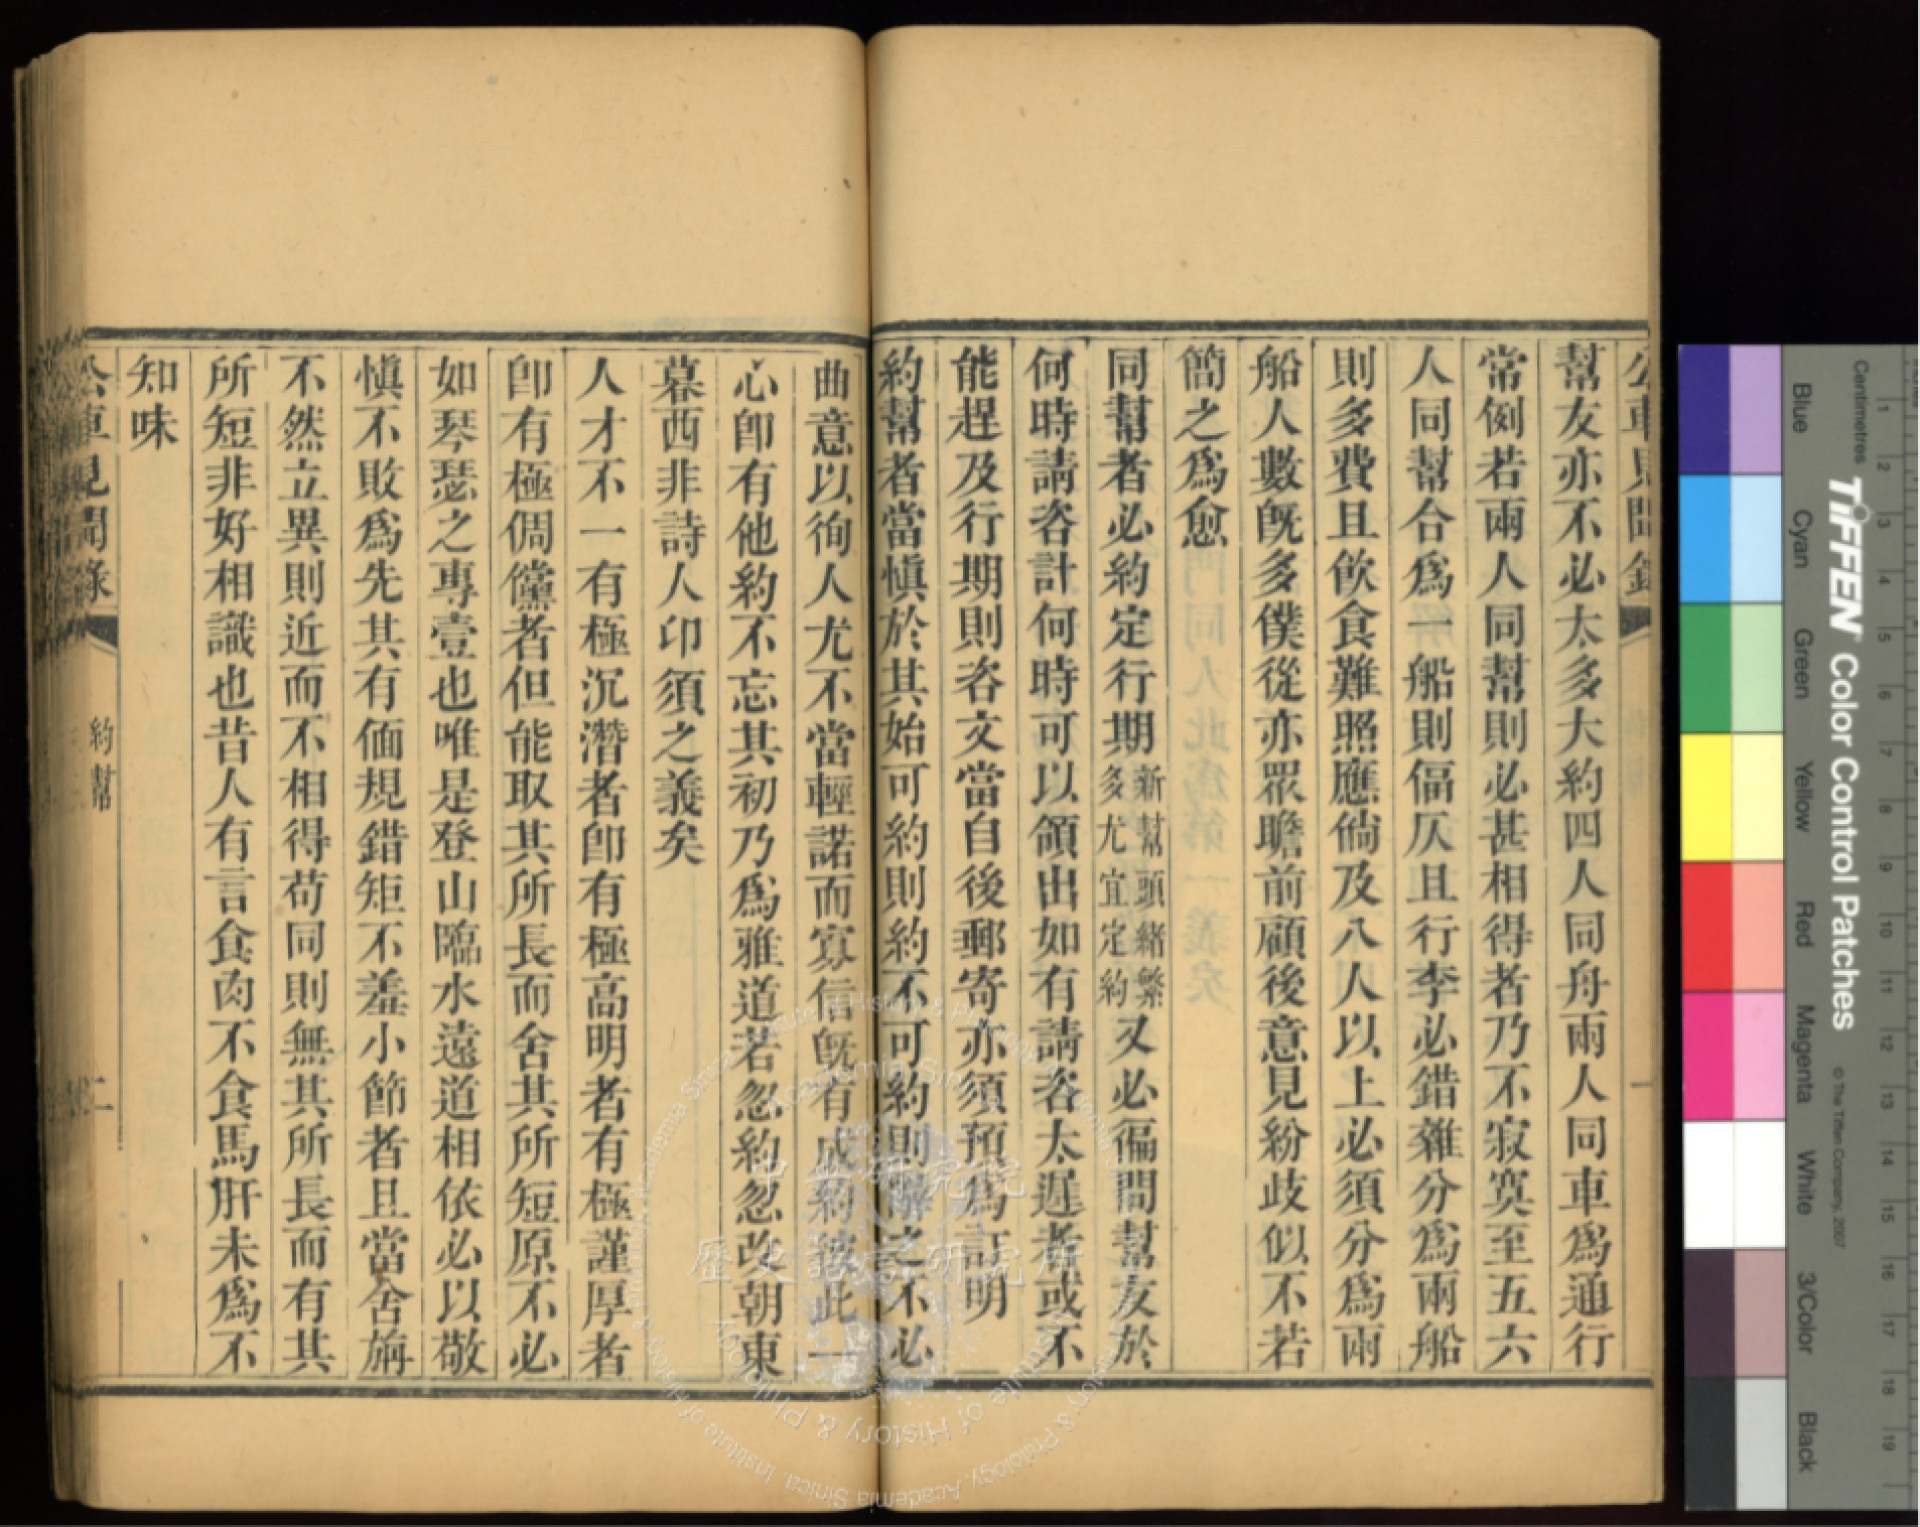 公車見聞錄
幫友亦不必太多大約四人同舟兩人同車爲通行
常例若兩人同幫則必甚相得者乃不寂寞至五六
人同幫合爲一船則偪仄且行李必錯雜分爲兩船
則多費且飮食難照應倘及八人以上必須分爲兩
船人數旣多僕從亦眾瞻前顧後意見紛歧似不若
簡之爲愈
同幫者必約定行期新幫頭緒繁多尤宜定約又必徧問幫友於
何時請咨計何時可以領出如有請咨太遲者或不
能趕及行期則咨文當自後郵寄亦須預爲訂明
約幫者當愼於其始可約則約不可約則辭之不必
曲意以徇人尤不當輕諾而寡信旣有成約彼此一
心卽有他約不忘其初乃爲雅道若忽約忽改朝東
暮西非詩人卬須之義矣
人才不一有極沉潛者卽有極高明者有極謹厚者
卽有極倜儻者但能取其所長而舍其所短原不必
如琴瑟之專壹也唯是登山臨水遠道相依必以敬
愼不敗爲先其有偭規錯矩不羞小節者且當舍旃
不然立異則近而不相得苟同則無其所長而有其
所短非好相識也昔人有言食肉不食馬肝未爲不
知味
公車見聞錄
約幫
二
Blue
Cyan
Green
Yellow
Red
Magenta
White
3/Color
Black
Centimetres
TIFFEN Color Control Patches
© The Tiffen Company, 2007
1 2 3 4 5 6 7 8 9 10 11 12 13 14 15 16 17 18 19
中央研究院
歷史語言研究所
Institute of History & Philology, Academia Sinica